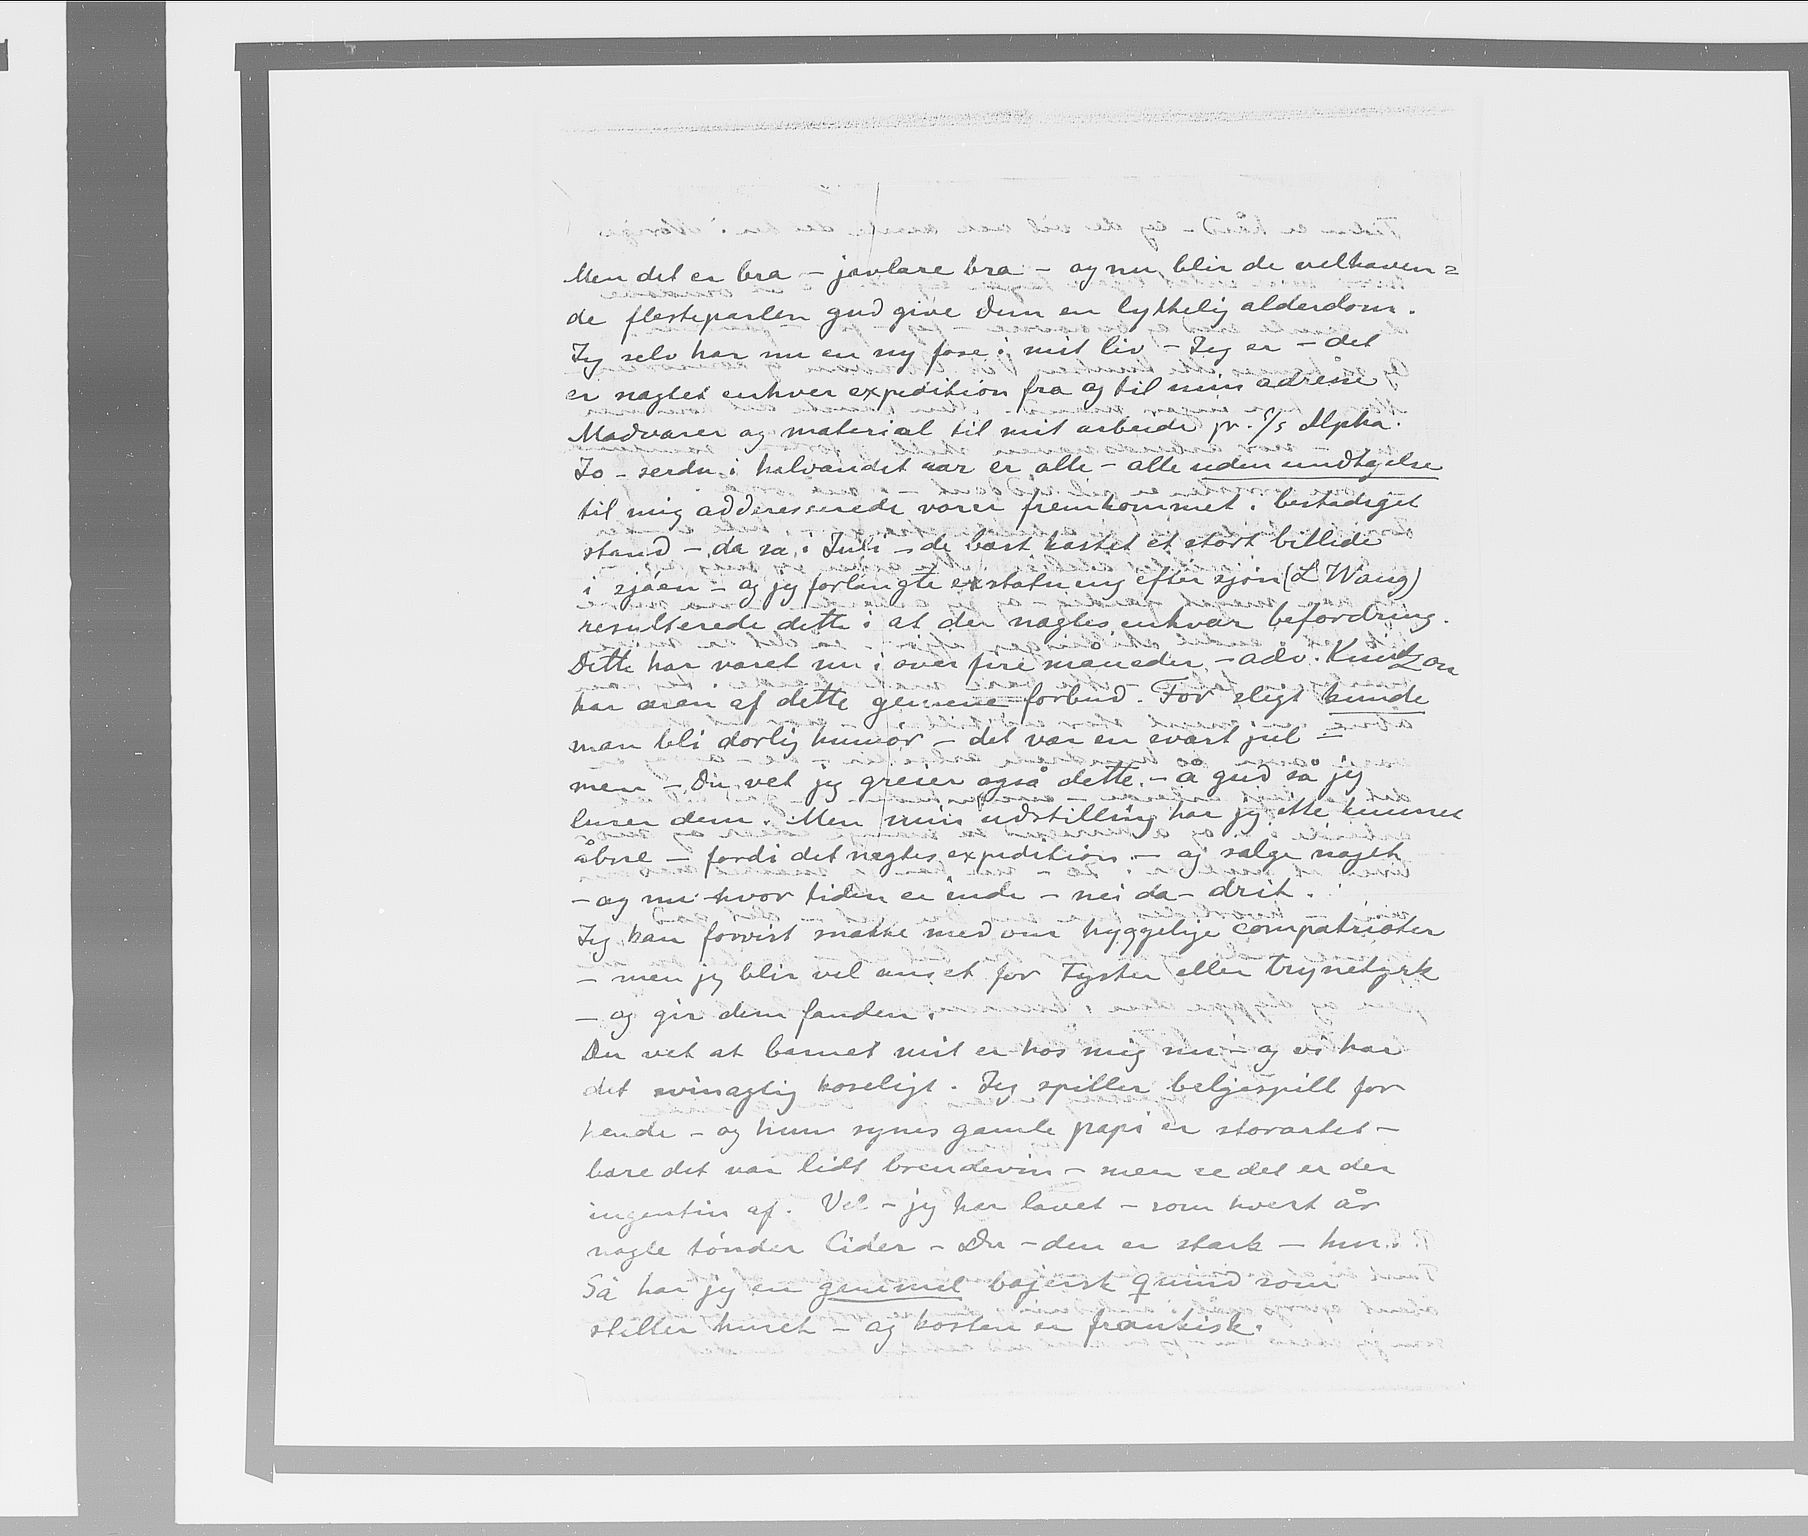 Men det er bra – javlare bra – og nu blir de velhaven=
de flesteparten gud give dem en lykkelig alderdom.
Jeg selv har nu en ny fase i mit liv – Jeg er – det
er nagtet enhver expedition fra og til min adresse
Madvarer og material til mit arbeide pr. D/s Alpha.
Jo – serdu i halvandet aar er alle – alle uden undtagelse
til mig adderesserede varer fremkommet i bestadiget
stand – da sa i Juli – de bæst kastet et stort billede
i sjøen – og jeg forlangte erstatning efter sjøn (L Wang)
resulterede dette i at der nagtes enhvær befordring.
Dette har været nu i over fire måneder – adv. Knutzon
har æren af dette gemene forbud. For sligt kunde
man bli dorlig humør – det var en svart jul –
men – Du vet jeg greier også dette. – å gud så jeg
luser dem. Men min udstilling har jeg ikke kunnet
åbne – fordi det nægtes expedition – og salge noget
– og nu hvor tiden er inde – nei da – drit.
Jeg kan forvist snakke med om hyggelige compatrioter
– men jeg blir vel anset for Tysker eller Trynetyrk
– og gir dem fanden.
Du vet at barnet mit er hos mig nu – og vi har
det svinagtig koseligt. Jeg spiller belgespill for
hende – og hun synes gamle papi er storartet –
bare det var lidt brendevin – men se det er der
ingentin af. Vel – jeg har lavet – som hvert år
nogle tønder Cider – Du – den er stark – hm.
Så har jeg en gammel bajersk quind som
stiller huset – og kosten er frankisk.